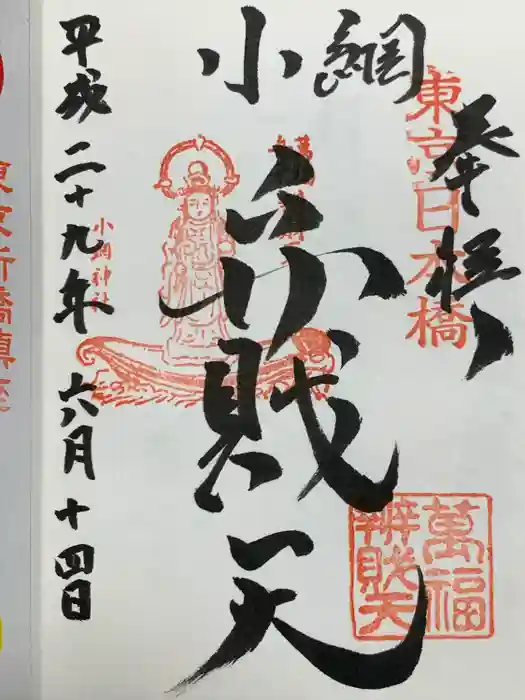 奉拝
東京日本橋
小網
弁財天
萬福
辨財天
小網神社
平成二十九年 六月十四日
東京新橋鎮座